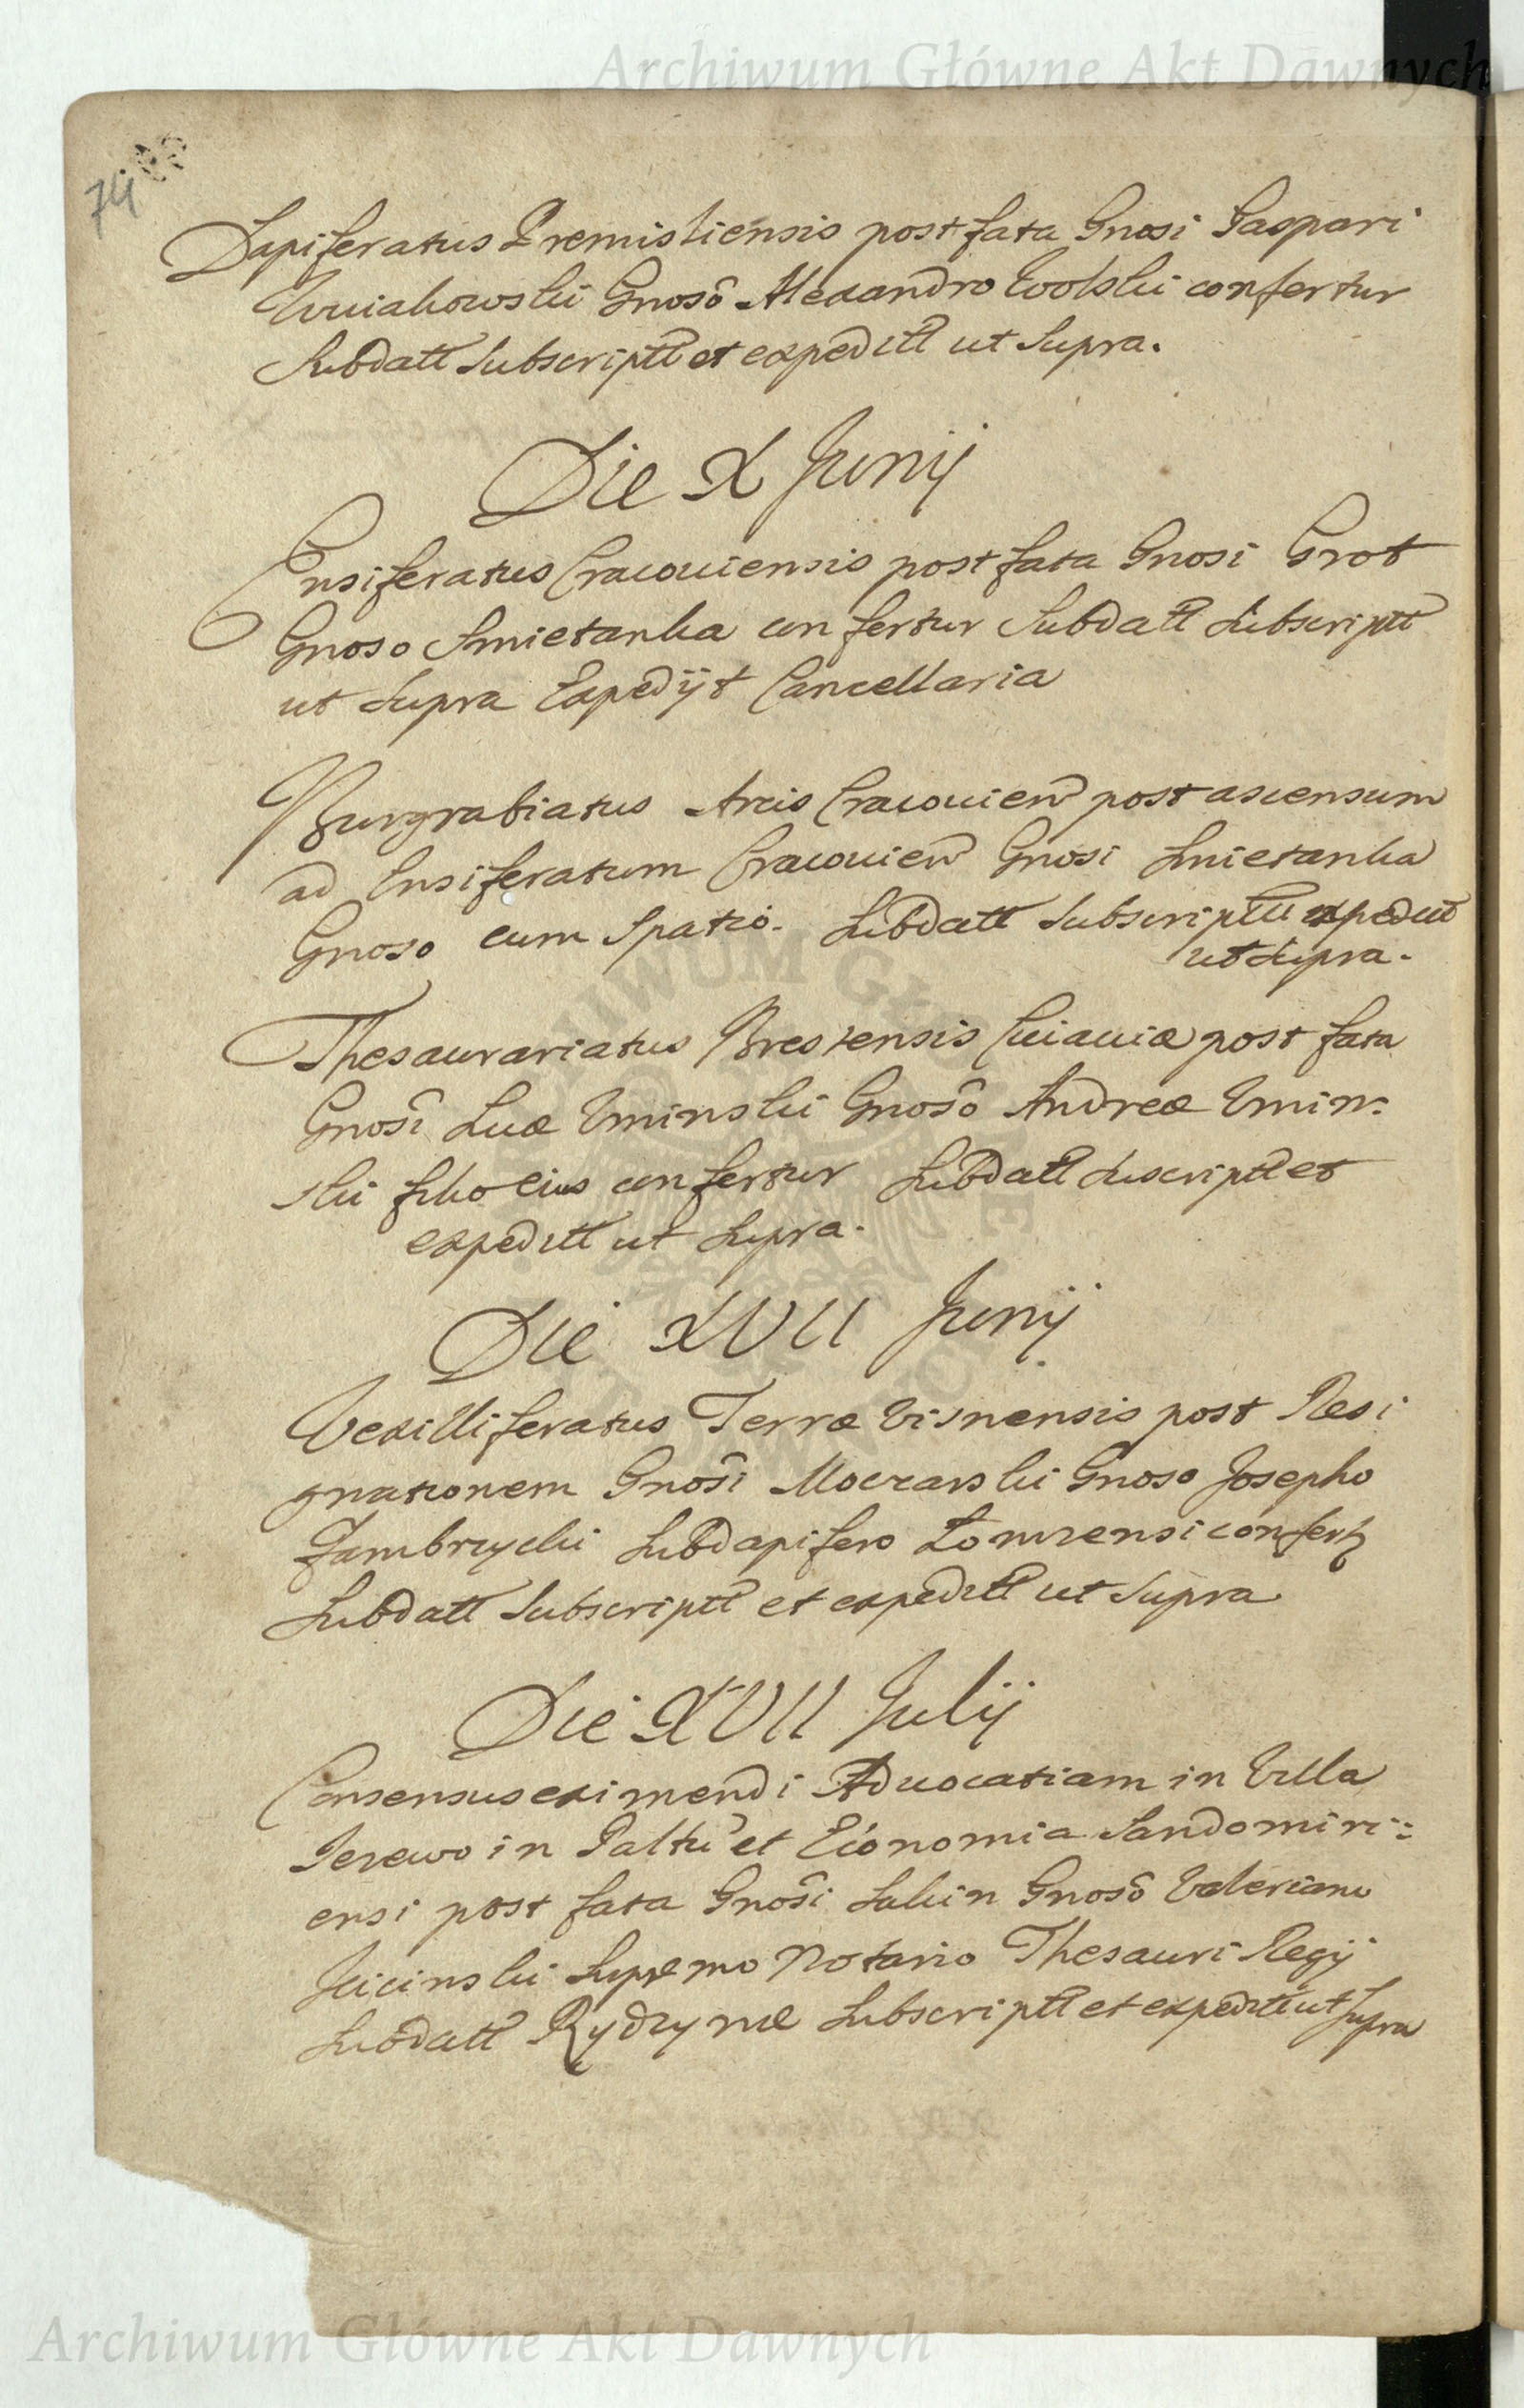 Archiwum Główne Akt Dawnych
74
Dapiferatus Premisliensis post fata Gnosi Gaspari
Gnosô Alexandro confertur
Subdatt Subscriptt et expeditt ut Supra.
Die X Junij
Ensiferatus Cracouiensis post fata Gnosi Grot
Gnoso Smietanka confertur Subdatt Subscriptt
ut Supra Expedijt Cancellaria
Burgrabiatus Arcis Cracouien post ascensum
ad Ensiferatum Cracouien Gnosi Smietanka
Gnoso cum Spatio. Subdatt Subscriptt expeditt
ut Supra.
Thesaurariatus Brestensis Cuiauiæ post fata
Gnosî Lucæ Uminski Gnosô Andreæ Umin:
ski filio eius confertur Subdatt Suscriptt et
expeditt ut Supra.
Die XVII Junij
Vexilliferatus Terræ Visnensis post Resi
gnationem Gnosî Moczarski Gnoso Josepho
Zambrzycki Subdapifero Lomzensi confertr
Subdatt Subscriptt et expeditt ut Supra
Die XVII Julij
Consensus eximendi Aduocatiam in Villa
Jezewo in Palttu et Economia Sandomiri:
ensi post fata Gnosî Gnosô Valeriano
Supremo Notario Thesauri Regij
Subdatt Rydzynæ Subscriptt et expeditt ut Supra
Archiwum Główne Akt Dawnych